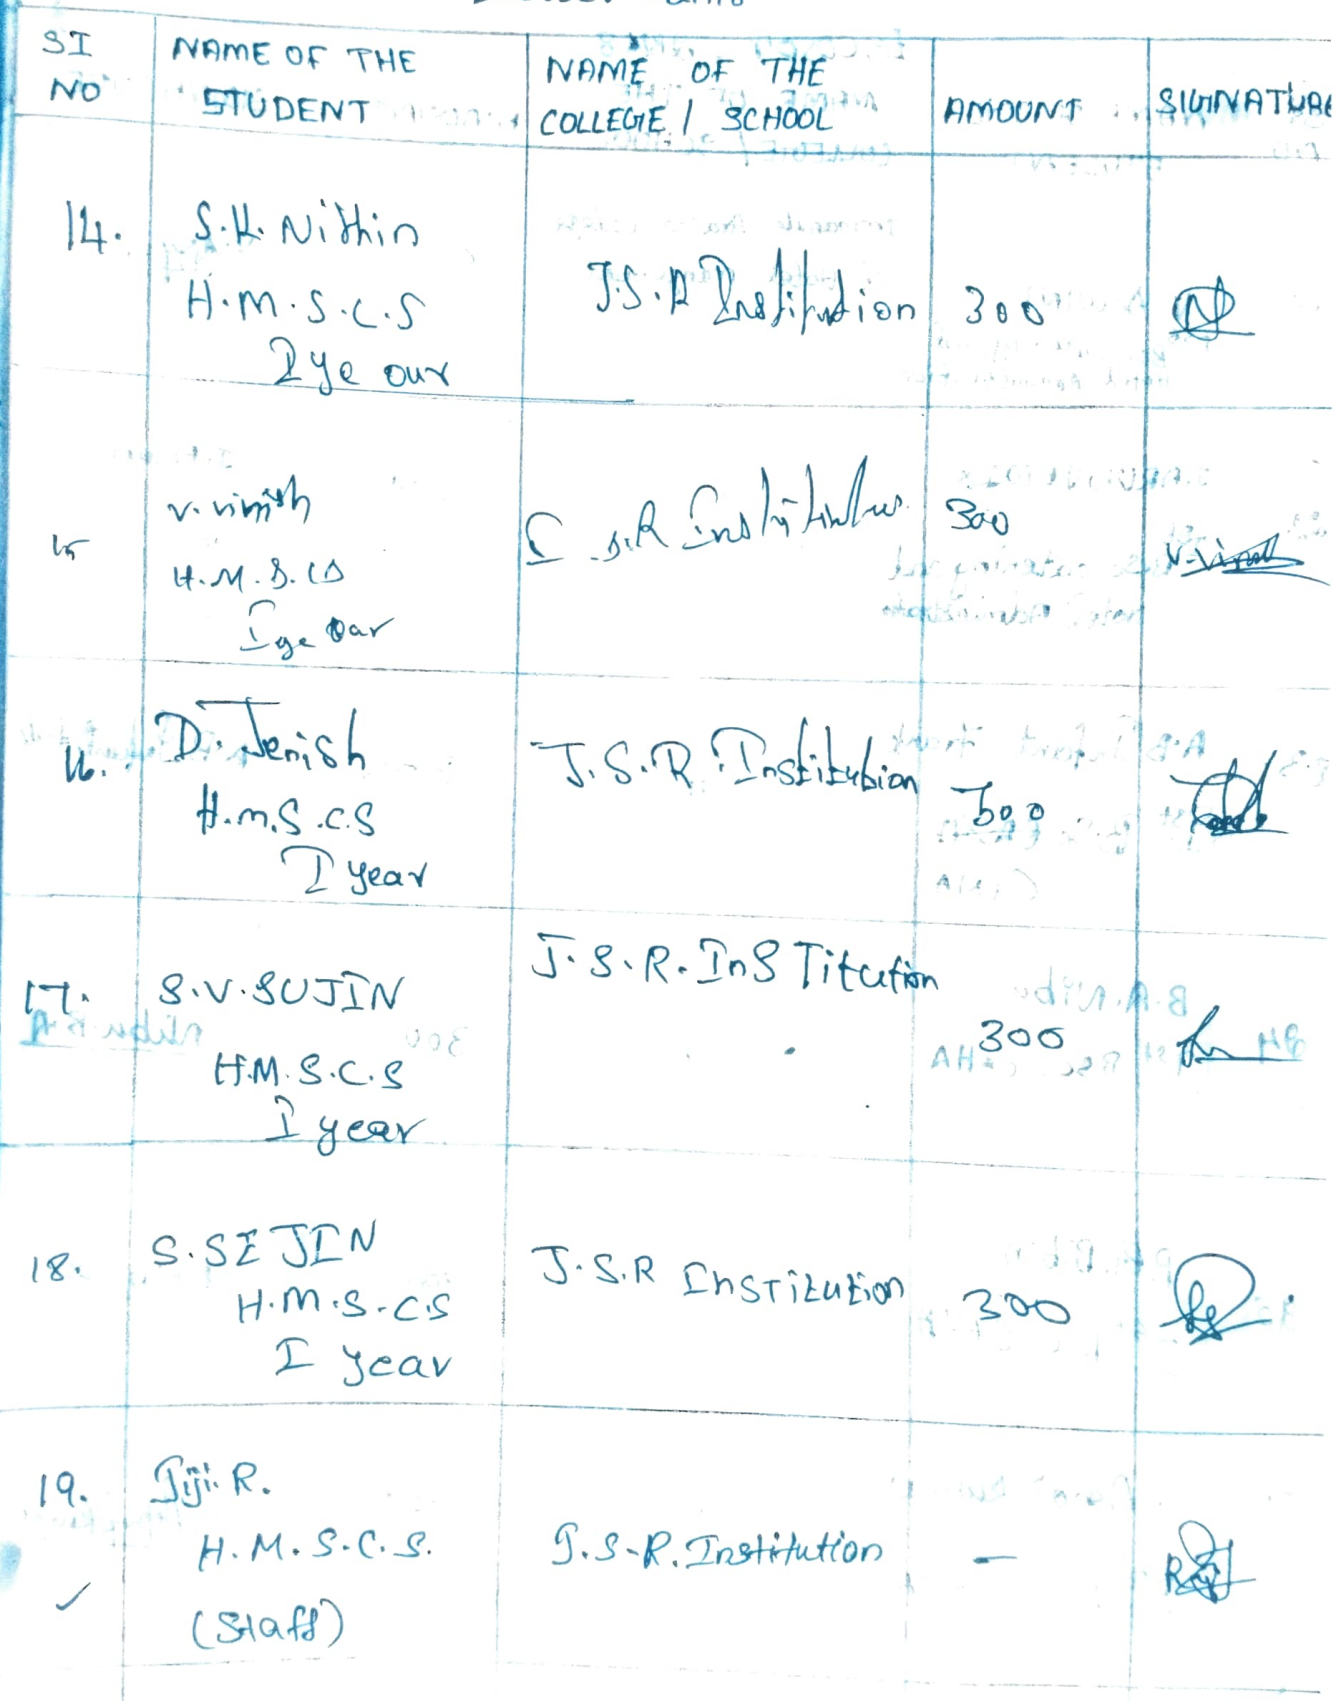 SI NO
NAME OF THE STUDENT
NAME OF THE COLLEGE / SCHOOL
AMOUNT
SIGNATURE
14.
S.H. Nithin
H.M.S.C.S
I ye our
J.S.R Institution
300
15
V. Vinish
H.M.S.CS
I ye our
J.S.R Institution
300
V. Vinish
16.
D. Jenish
H.m.S.C.S
I year
J.S.R. Institubion
300
17.
S.V. SUJIN
H.M.S.C.S
I year
J.S.R. InSTitution
300
18.
S. SEJIN
H.M.S.C.S
I year
J.S.R InsTitution
300
19.
Jiji. R.
H.M.S.C.S.
(Staff)
J.S.R. Institution
-